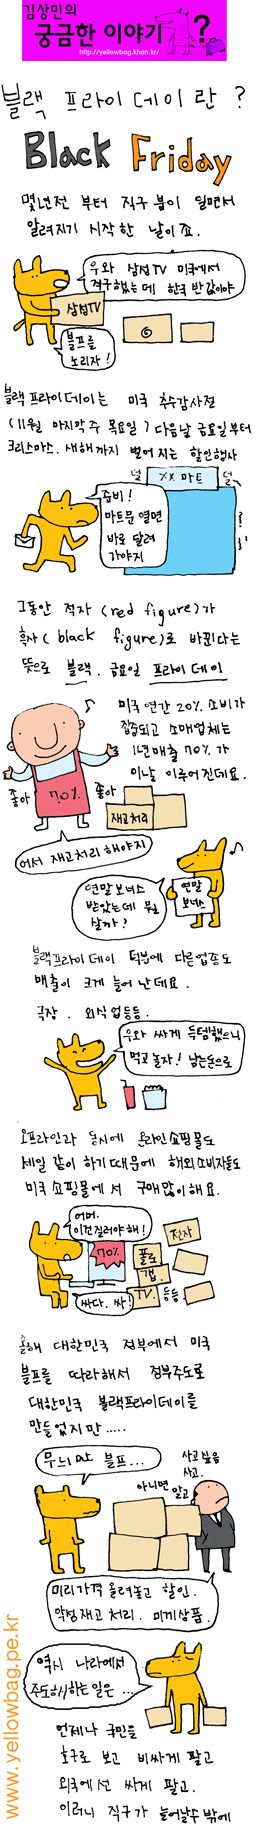 김상민의
궁금한 이야기
?
http://yellowbag.khan.kr/
블랙 프라이데이란 ?
Black Friday
몇년전 부터 직구 붐이 일면서
알려지기 시작한 날이죠.
우와 삼성TV 미국에서
직구했는데 한국 반값이야
삼성TV
블프를
노리자!
블랙프라이데이는 미국 추수감사절
(11월 마지막주 목요일) 다음날 금요일부터
크리스마스, 새해까지 벌어지는 할인행사
덜 XX 마트 덜
준비!
마트문 열면
바로 달려
가야지
그동안 적자 (red figure)가
흑자 (black figure)로 바뀐다는
뜻으로 블랙, 금요일 프라이데이
미국 연간 20% 소비가
집중되고 소매업체는
1년매출 70%가
이날 이루어진데요.
좋아 70% 좋아
재고처리
어서 재고처리 해야지
연말보너스
받았는데 뭘
살까?
연말
보너스
블랙프라이데이 덕분에 다른업종도
매출이 크게 늘어난데요.
극장, 외식업등등.
우와 싸게 득템했으니
먹고놀자! 남는돈으로
오프라인과 동시에 온라인쇼핑몰도
세일 같이 하기때문에 해외소비자들도
미국 쇼핑몰에서 구매많이해요.
어머.
이건질러야해!
70%
전자
폴로
갭.
TV. 등등
싸다. 싸!
올해 대한민국 정부에서 미국
블프를 따라해서 정부주도로
대한민국 블랙프라이데이를
만들었지만.....
무늬만 블프...
사고싶음
사고.
아니면 말고
미리가격 올려놓고 할인.
악성재고 처리. 미끼상품.
역시 나라에서
주도해서하는 일은...
언제나 국민을
호구로 보고 비싸게 팔고
외국에선 싸게 팔고.
이러니 직구가 늘어날수 밖에
www.yellowbag.pe.kr